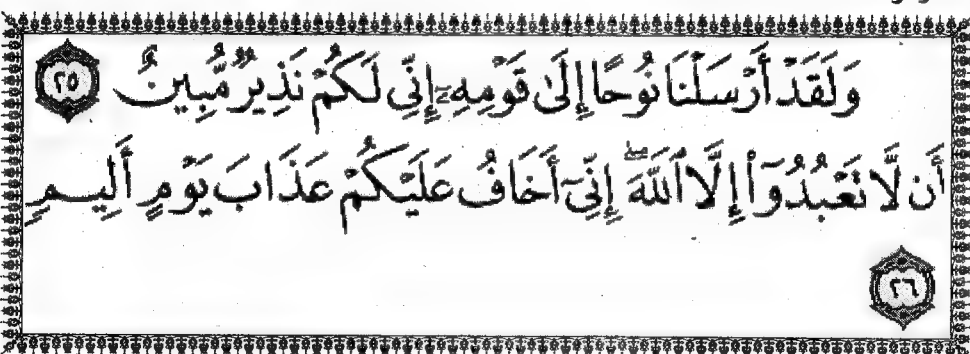 وَلَقَدْ أَرْسَلْنَا نُوحًا إِلَىٰ قَوْمِهِۦٓ إِنِّى لَكُمْ نَذِيرٌ مُّبِينٌ ٢٥
أَن لَّا تَعْبُدُوٓا۟ إِلَّا ٱللَّهَ ۖ إِنِّىٓ أَخَافُ عَلَيْكُمْ عَذَابَ يَوْمٍ أَلِيمٍ
٢٦